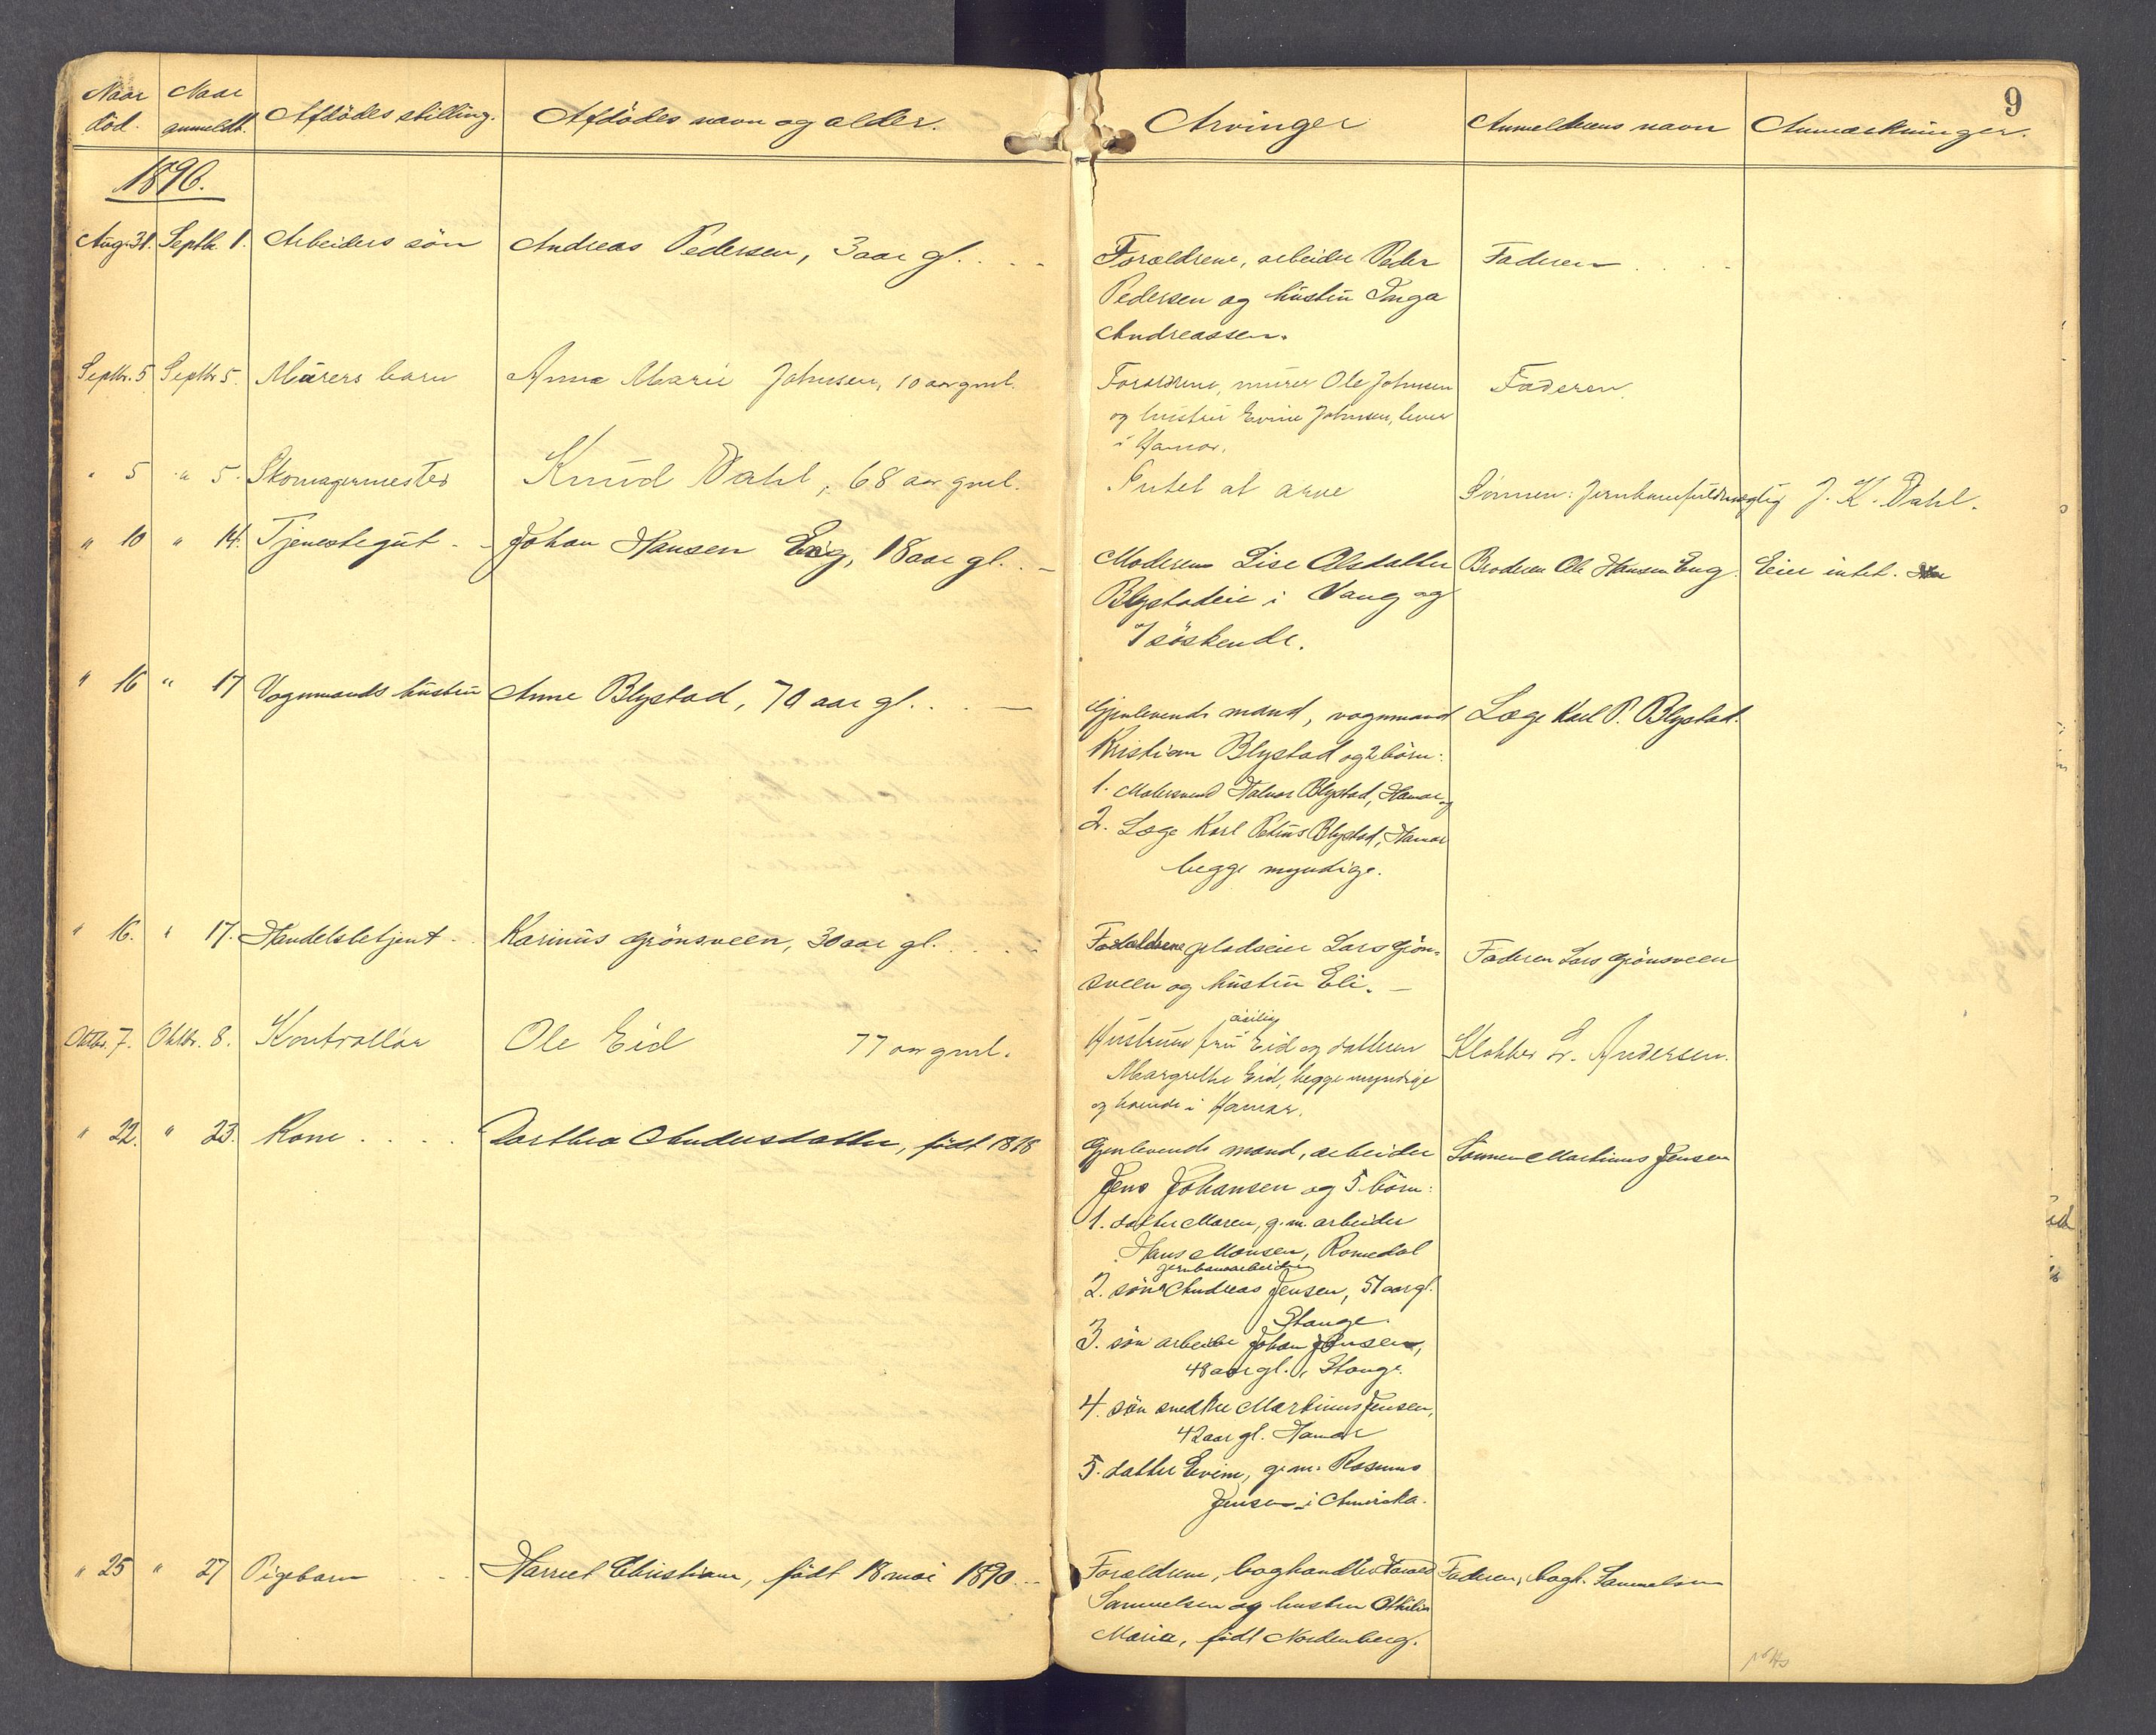 9
Naar død. Naar anmeldt. Afdödes stilling. Afdödes navn og alder. Arvinger Anmelderens navn Anmærkninger.
1890.
Aug. 31. Septbr. 1. Arbeiders sön Andreas Pedersen, 3 aar gl. . . Forældrene, arbeider Peder Faderen . . .
Pedersen og hustru Inga
Andreassen.
Septbr. 5 Septbr 5. Murers barn Anne Marie Johnsen, 10 aar gml. Forældrene, murer Ole Johnsen Faderen.
og hustru Evine Johnsen, lever
i Hamar.
" 5 " 5. Skomagermester Knud Dahl, 68 aar gml. Intet at arve Sönnen: Jernbanefuldmægtig J. K. Dahl.
" 10 " 14. Tjenestegut - - Johan Hansen Eng, 18 aar gl. . - Moderen Lise Olsdatter Broderen Ole Hansen Eng. Eier intet.
Blystadeie i Vang og
7 söskende.
" 16 " 17 Vognmands hustru Anne Blystad, 70 aar gl. . . — Gjenlevende mand, vognmand Læge Karl P. Blystad.
Kristian Blystad og 2 börn:
1. Malersvend Halvor Blystad, Hamar og
2. Læge Karl Petrus Blystad, Hamar
begge myndige.
" 16. " 17. Handelsbetjent . Karinus Grönsveen, 30 aar gl. . . . Forældrene pladseier Lars Grön- Faderen Lars Grönsveen
sveen og hustru Eli. —
Oktbr. 7. Oktbr. 8. Kontrollör Ole Eid 77 aar gml. Hustruen fru Eid og datteren Klokker Andersen.
Margrethe Eid, begge myndige
og boende i Hamar.
" 22. " 23. Kone . . . . Dorthea Andersdatter, födt 1818 Gjenlevende mand, arbeider Sönnen Martinus Jensen
Jens Johansen og 5 börn:
1. datter Maren, g. m. arbeider
Hans Monsen, Romedal
jernbanearbeider
2. sön Andreas Jensen, 51 aar gl.
Stange.
3. sön arbeider Johan Jensen,
48 aar gl. i Stange.
4. sön snedker Martinus Jensen,
42 aar gl. Hamar
5. datter Evine, g. m. Rasmus
Jensen i Amerika.
" 25 " 27 Pigebarn . . . Harriet Christiane, födt 18 mai 1890 . . Forældrene, boghandler Harald Faderen, bogh. Samuelsen
Samuelsen og hustru Othilie
Maria, födt Nordenberg.